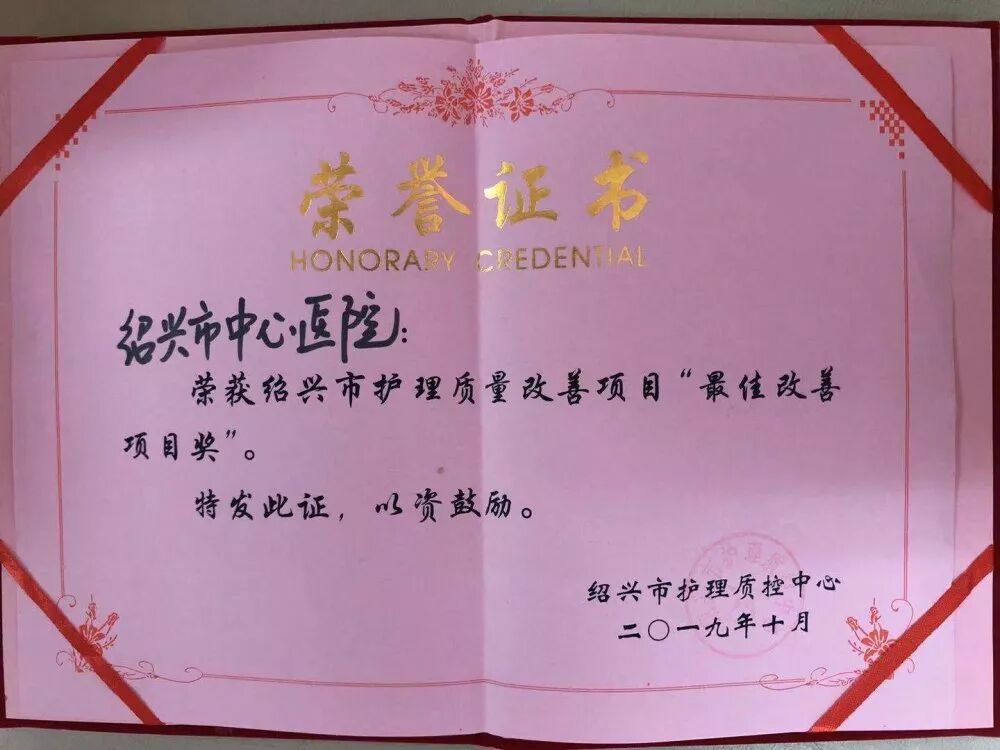 荣誉证书
HONORARY CREDENTIAL
绍兴市中心医院:
荣获绍兴市护理质量改善项目“最佳改善
项目奖”。
特发此证，以资鼓励。
绍兴市护理质控中心
二〇一九年十月